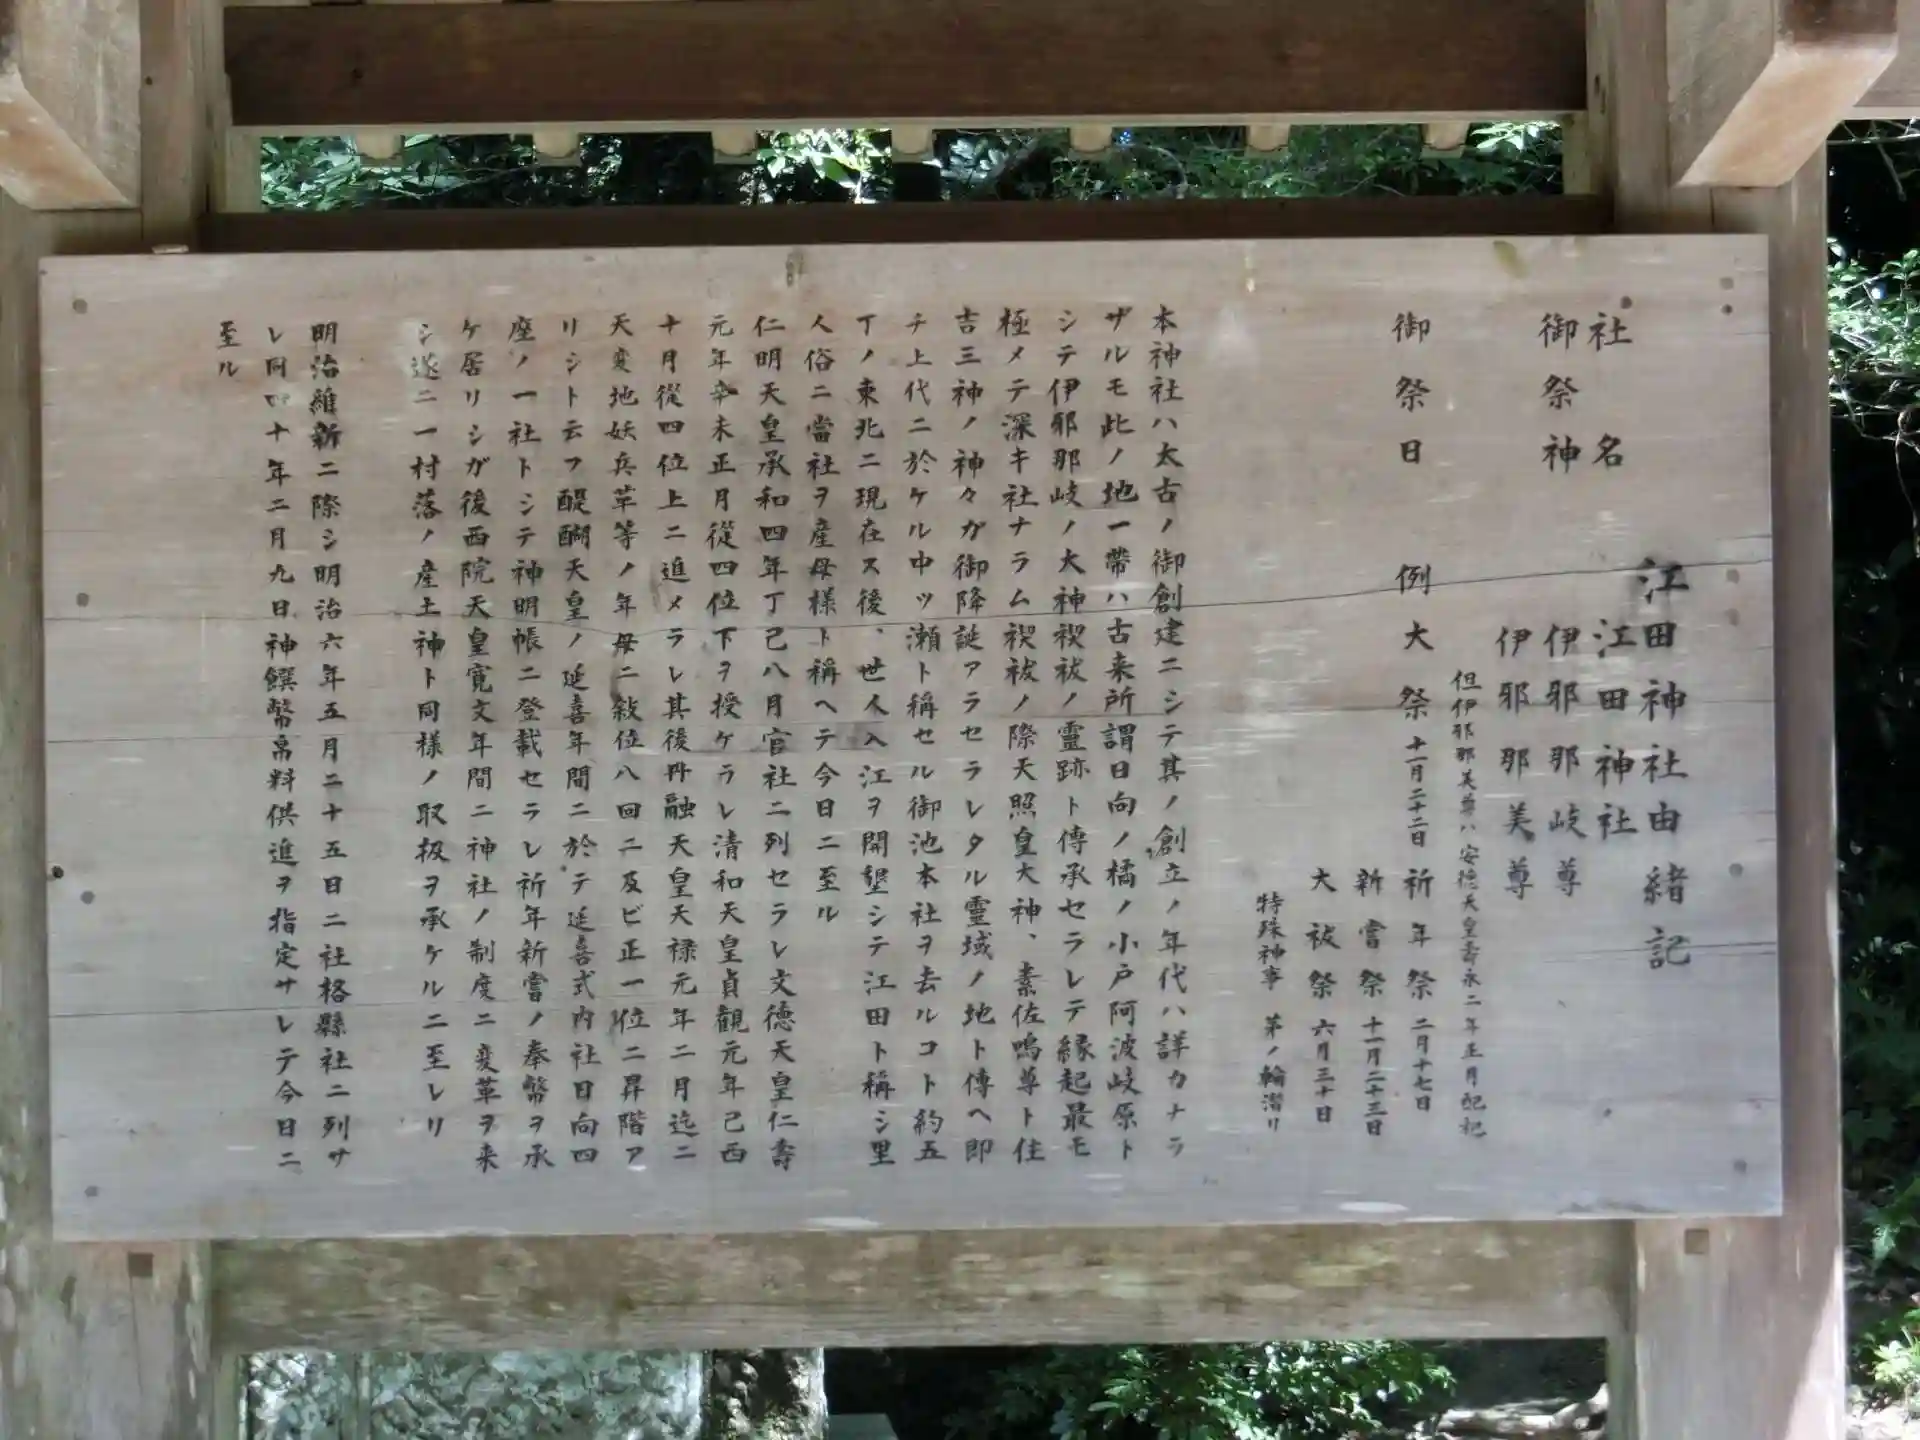 江田神社由緒記
社名 江田神社
御祭神 伊邪那岐尊
伊邪那美尊
但伊邪那美尊ハ安徳天皇壽永二年正月配祀
御祭日 例大祭 十一月二十二日 祈年祭 二月十七日
新嘗祭 十一月二十三日
大祓祭 六月三十日
特殊神事 茅ノ輪潜リ
本神社ハ太古ノ御創建ニシテ其ノ創立ノ年代ハ詳カナラ
ザルモ此ノ地一帶ハ古来所謂日向ノ橘ノ小戸阿波岐原ト
シテ伊邪那岐ノ大神禊祓ノ靈跡ト傳承セラレテ縁起最モ
極メテ深キ社ナラム禊祓ノ際天照皇大神、素佐鳴尊ト住
吉三神ノ神々ガ御降誕アラセラレタル靈域ノ地ト傳ヘ即
チ上代ニ於ケル中ツ瀬ト稱セル御池本社ヲ去ルコト約五
丁ノ東北ニ現在ス後、世人入江ヲ開墾シテ江田ト稱シ里
人俗ニ當社ヲ産母様ト稱ヘテ今日ニ至ル
仁明天皇承和四年丁己八月官社ニ列セラレ文徳天皇仁壽
元年辛未正月從四位下ヲ授ケラレ清和天皇貞観元年己酉
十月從四位上ニ進メラレ其後丹融天皇天禄元年二月迄ニ
天変地妖兵革等ノ年毎ニ敍位八回ニ及ビ正一位ニ昇階ア
リシト云フ醍醐天皇ノ延喜年間ニ於テ延喜式内社日向四
座ノ一社トシテ神明帳ニ登載セラレ祈年新嘗ノ奉幣ヲ承
ケ居リシガ後西院天皇寛文年間ニ神社ノ制度ニ変革ヲ来
シ遂ニ一村落ノ産土神ト同様ノ取扱ヲ承ケルニ至レリ
明治維新ニ際シ明治六年五月二十五日ニ社格縣社ニ列サ
レ同四十年二月九日神饌幣帛料供進ヲ指定サレテ今日ニ
至ル